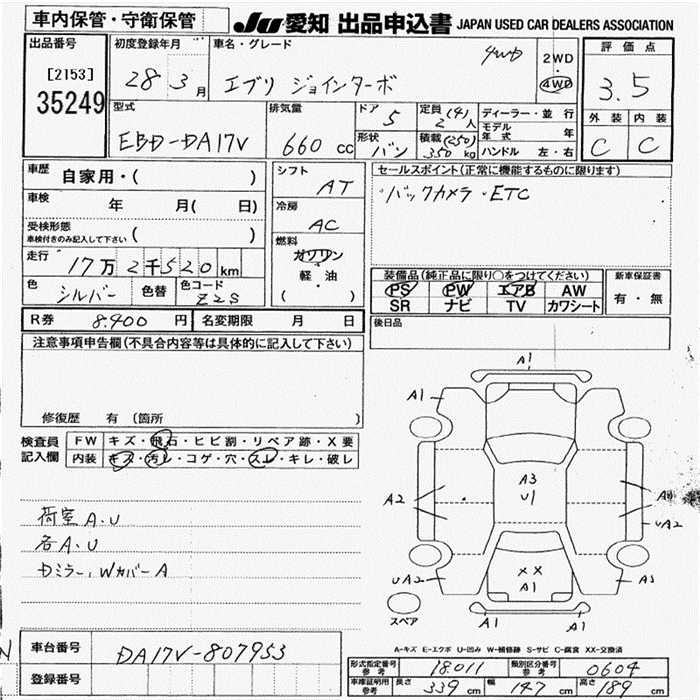 車内保管・守衛保管
JU 愛知 出品申込書 JAPAN USED CAR DEALERS ASSOCIATION
出品番号
[2153]
35249
初度登録年月
28年 3月
車名・グレード
エブリ ジョインターボ
4WD
2WD
4WD
評価点
3.5
外装 内装
C C
型式
EBD-DA17V
排気量
660 CC
ドア 5
形状 バン
定員 (4) 2人
積載 (250) 350 kg
ディーラー・並行
モデル年式 年
ハンドル 左・右
車歴
自家用・( )
車検 年 月( 日)
受検形態
車検付きのみ記入して下さい ( )
走行 17万2千520km
色 シルバー 色替 色コード Z2S
シフト
AT
冷房
AC
燃料
ガソリン
軽・油
( )
セールスポイント(正常に機能するものに限ります)
・バックカメラ・ETC
装備品(純正品に限り○をつけてください)
PS PW エアB AW
SR ナビ TV カワシート
新車保証書
有・無
R券 8.400 円 名変期限 月 日
後日品
注意事項申告欄(不具合内容等は具体的に記入して下さい)
修復歴 有 (箇所 )
検査員
記入欄
FW キズ・飛石・ヒビ割・リペア跡・X要
内装 キズ・汚レ・コゲ・穴・スレ・キレ・破レ
荷室A.U
各A.U
Dミラー,WカバーA
A1
A1
A3
U1
A2
UA2
UA2
A3
XX
A1
A1
A1
スペア
A-キズ E-エクボ U-凹み W-補修跡 S-サビ C-腐食 XX-交換済
車台番号 DA17V-807953
登録番号
形式指定番号 18011 類別区分番号 0604
車庫証明用参考 長さ 339 cm 幅 147 cm 高さ 189 cm